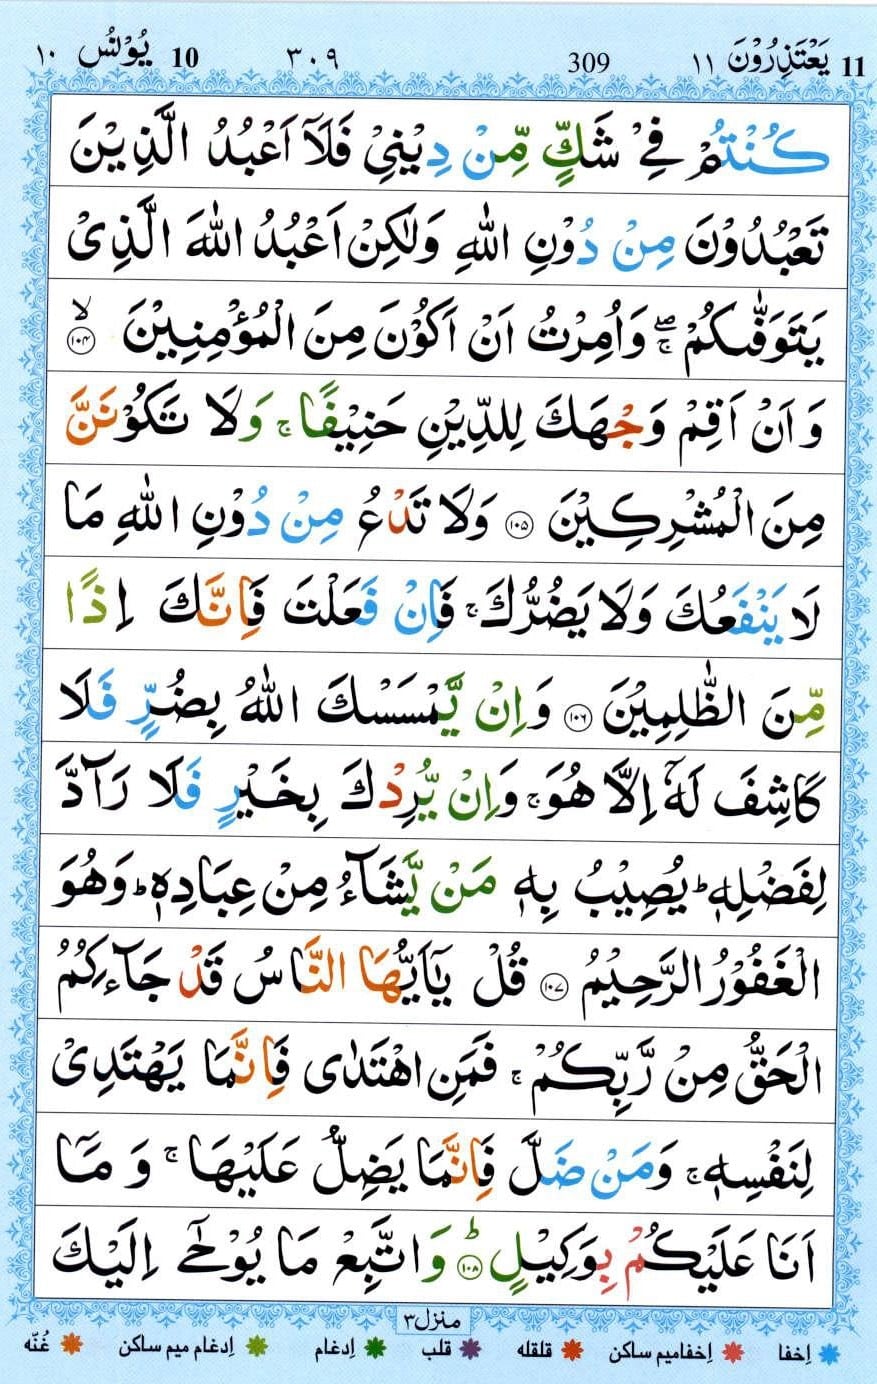 11 يَعْتَذِرُوْنَ ١١ 309 ٣٠٩ 10 يُوْنُس ١٠
كُنْتُمْ فِیْ شَكٍّ مِّنْ دِیْنِیْ فَلَاۤ اَعْبُدُ الَّذِیْنَ
تَعْبُدُوْنَ مِنْ دُوْنِ اللّٰهِ وَلٰكِنْ اَعْبُدُ اللّٰهَ الَّذِیْ
یَتَوَفّٰىكُمْ ۖۚ وَاُمِرْتُ اَنْ اَكُوْنَ مِنَ الْمُؤْمِنِیْنَ ۙ ۱۰۴
وَاَنْ اَقِمْ وَجْهَكَ لِلدِّیْنِ حَنِیْفًا ۚ وَلَا تَكُوْنَنَّ
مِنَ الْمُشْرِكِیْنَ ۱۰۵ وَلَا تَدْعُ مِنْ دُوْنِ اللّٰهِ مَا
لَا یَنْفَعُكَ وَلَا یَضُرُّكَ ۚ فَاِنْ فَعَلْتَ فَاِنَّكَ اِذًا
مِّنَ الظّٰلِمِیْنَ ۱۰۶ وَاِنْ یَّمْسَسْكَ اللّٰهُ بِضُرٍّ فَلَا
كَاشِفَ لَهٗۤ اِلَّا هُوَ ۚ وَاِنْ یُّرِدْكَ بِخَیْرٍ فَلَا رَآدَّ
لِفَضْلِهٖ ؕ یُصِیْبُ بِهٖ مَنْ یَّشَآءُ مِنْ عِبَادِهٖ ؕ وَهُوَ
الْغَفُوْرُ الرَّحِیْمُ ۱۰۷ قُلْ یٰۤاَیُّهَا النَّاسُ قَدْ جَآءَكُمُ
الْحَقُّ مِنْ رَّبِّكُمْ ۚ فَمَنِ اهْتَدٰی فَاِنَّمَا یَهْتَدِیْ
لِنَفْسِهٖ ۚ وَمَنْ ضَلَّ فَاِنَّمَا یَضِلُّ عَلَیْهَا ۚ وَمَاۤ
اَنَا عَلَیْكُمْ بِوَكِیْلٍ ؕ ۱۰۸ وَاتَّبِعْ مَا یُوْحٰۤی اِلَیْكَ
منزل۳
اِخفا اِخفامیم ساکن قلقله قلب اِدغام اِدغام میم ساکن غُنّه